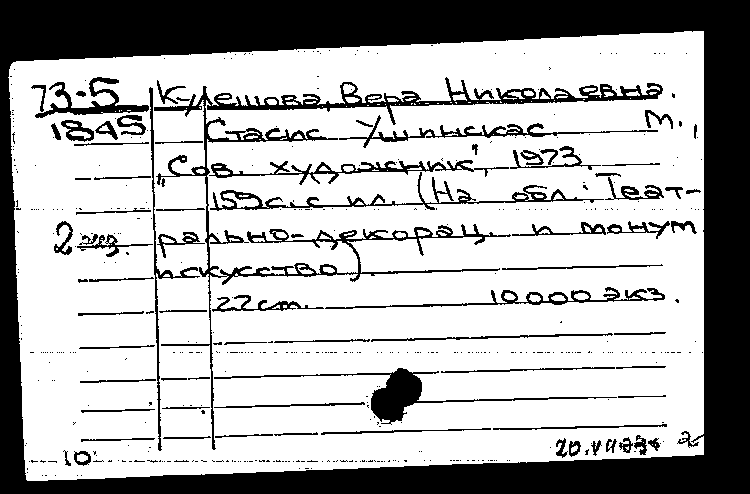 73-5 Кулешова, Вера Николаевна.
1845 Стасис Ушинскас. М.,
„Сов. художник", 1973.
159 с. с ил. (На обл.: Теат-
2 экз. рально-декорац. и монум
искусство).
22 см. 10000 экз.
10